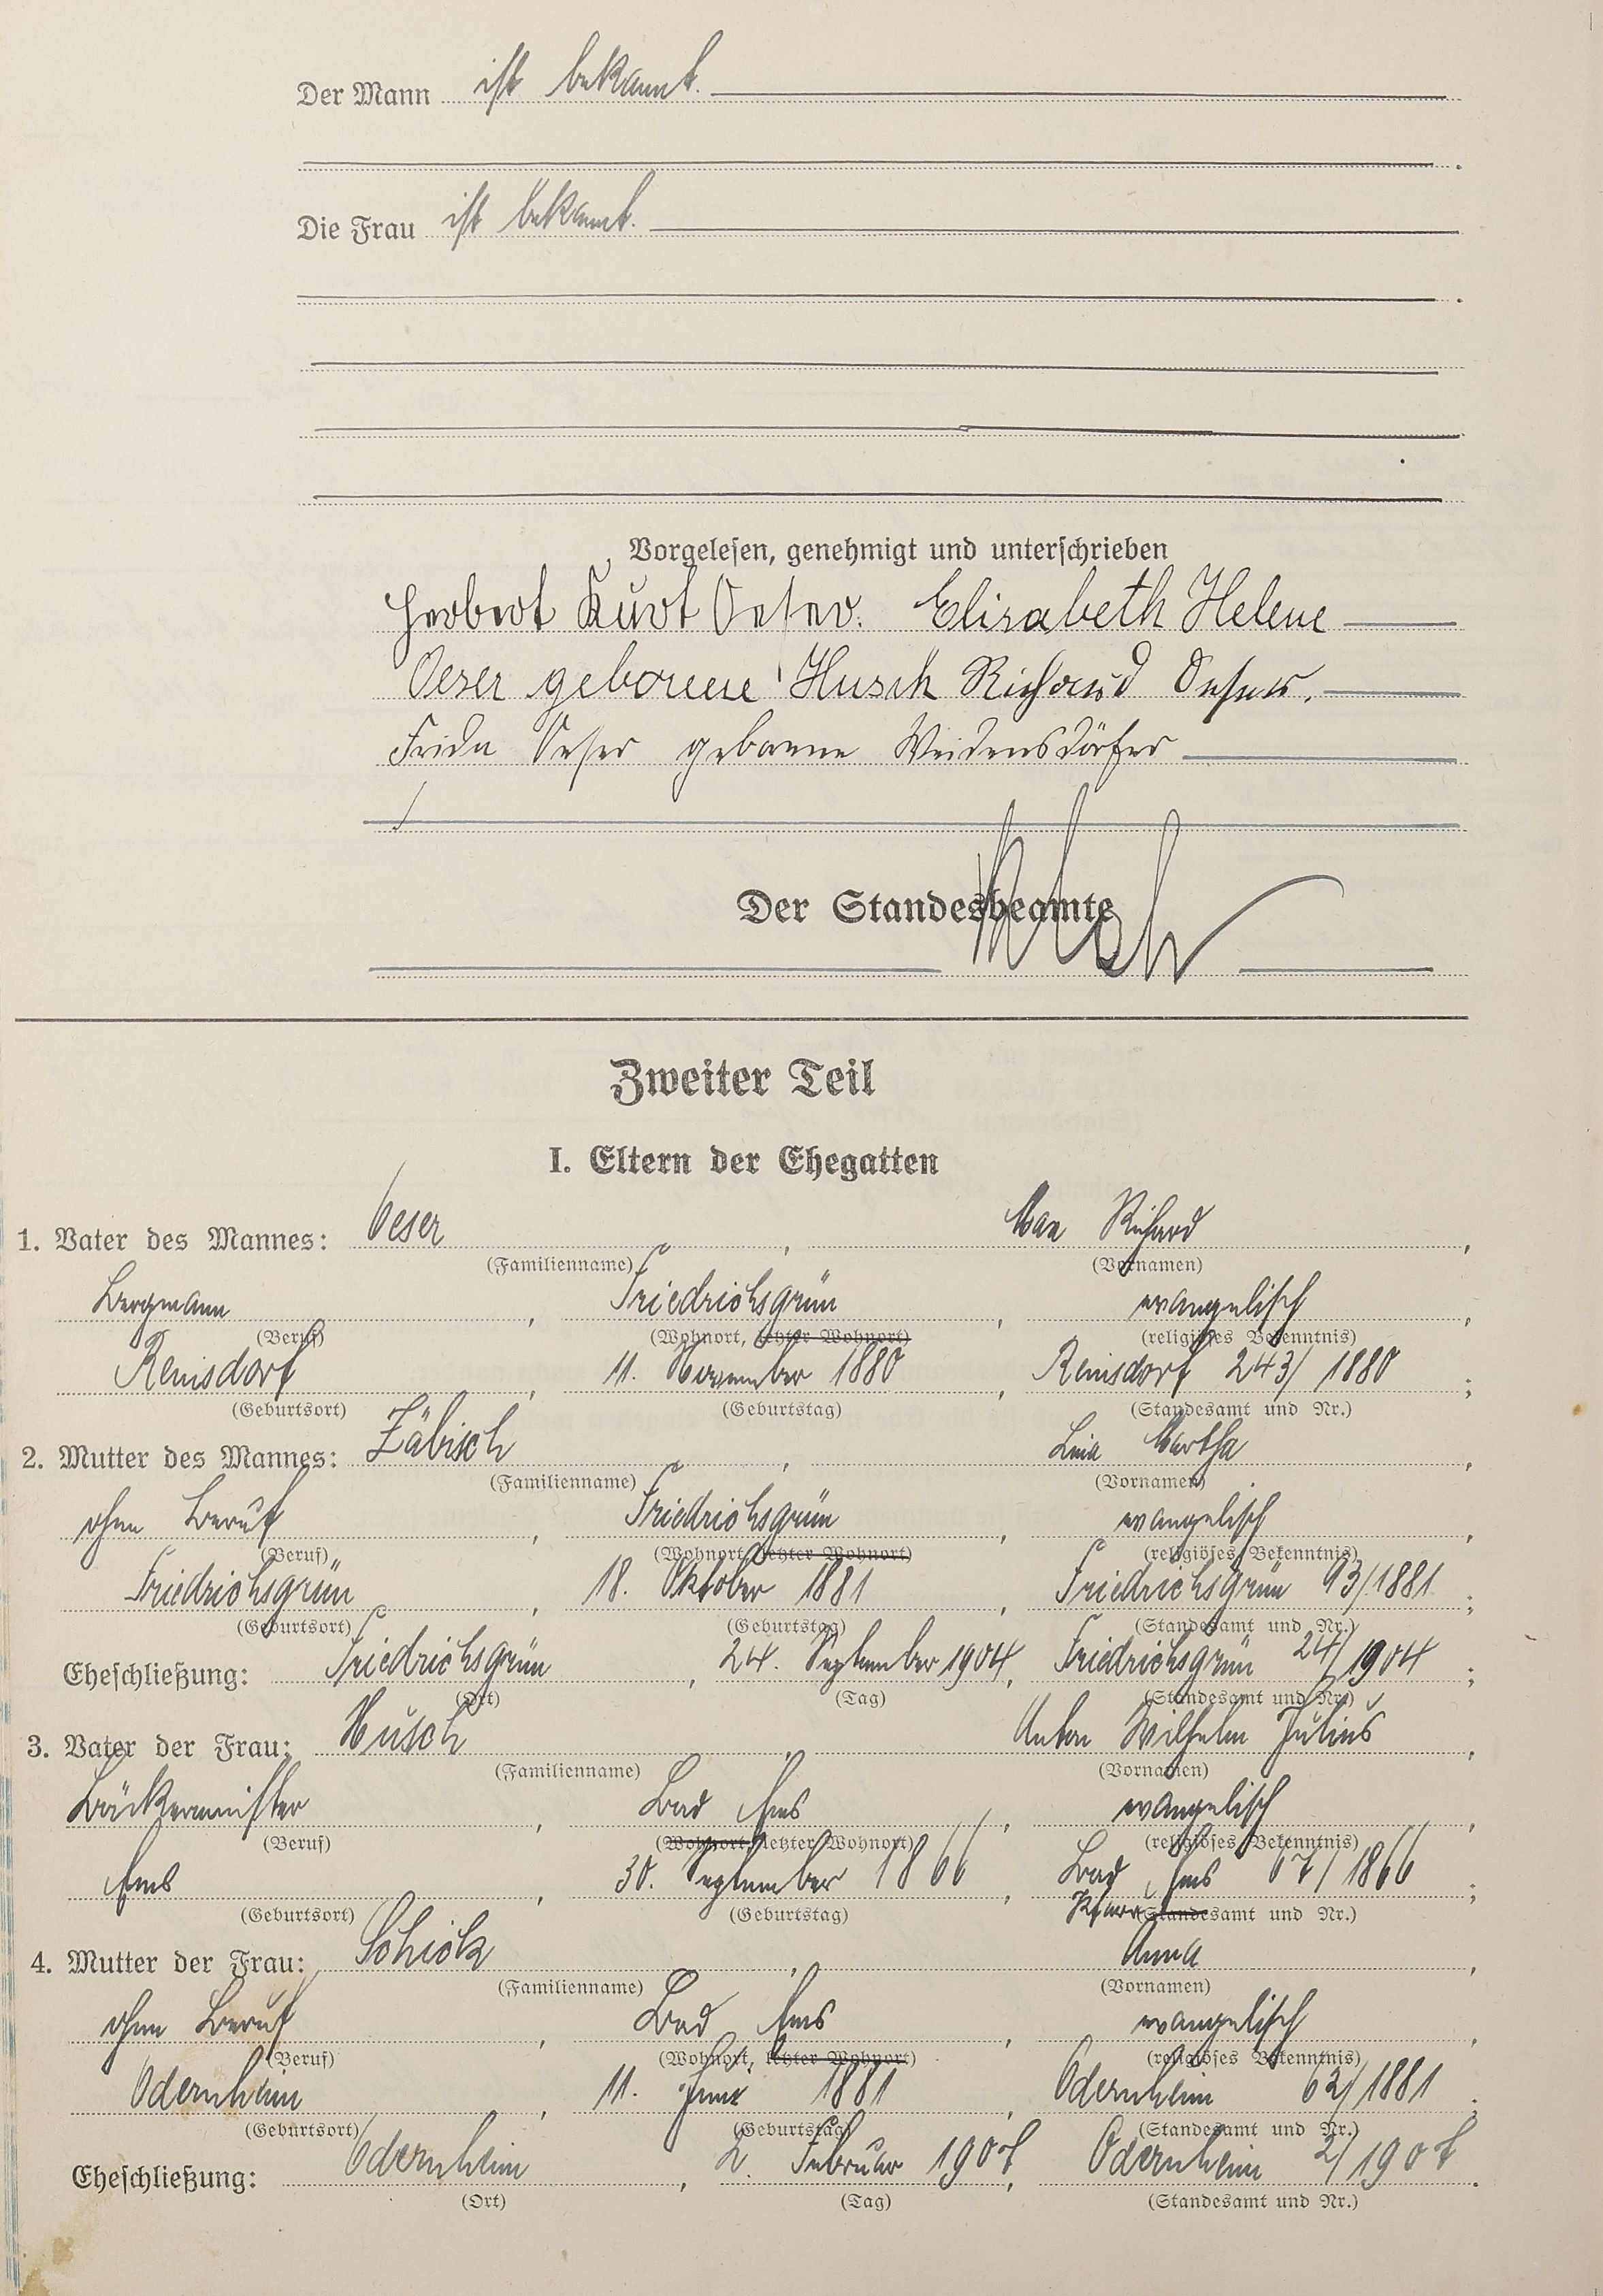 Der Mann ist bekannt.
Die Frau ist bekannt.
Vorgelesen, genehmigt und unterschrieben
Herbert Kurt Oeser. Elisabeth Helene
Oeser geborene Husch Richard Oeser.
Frida Oeser geborene Weidensdörfer
Der Standesbeamte
Zweiter Teil
I. Eltern der Ehegatten
1. Vater des Mannes: Oeser, Max Richard,
(Familienname) (Vornamen)
Bergmann, Friedrichsgrün, evangelisch,
(Beruf) (Wohnort, letzter Wohnort) (religiöses Bekenntnis)
Reinsdorf, 11. November 1880, Reinsdorf 243/1880;
(Geburtsort) (Geburtstag) (Standesamt und Nr.)
2. Mutter des Mannes: Zäbisch, Lina Martha,
(Familienname) (Vornamen)
ohne Beruf, Friedrichsgrün, evangelisch,
(Beruf) (Wohnort, letzter Wohnort) (religiöses Bekenntnis)
Friedrichsgrün, 18. Oktober 1881, Friedrichsgrün 93/1881;
(Geburtsort) (Geburtstag) (Standesamt und Nr.)
Eheschließung: Friedrichsgrün, 24. September 1904, Friedrichsgrün 24/1904;
(Ort) (Tag) (Standesamt und Nr.)
3. Vater der Frau: Husch, Anton Wilhelm Julius,
(Familienname) (Vornamen)
Bäckermeister, Bad Ems, evangelisch,
(Beruf) (Wohnort, letzter Wohnort) (religiöses Bekenntnis)
Ems, 30. September 1866, Bad Ems 67/1866;
(Geburtsort) (Geburtstag) Pfarr (Standesamt und Nr.)
4. Mutter der Frau: Schick, Anna,
(Familienname) (Vornamen)
ohne Beruf, Bad Ems, evangelisch,
(Beruf) (Wohnort, letzter Wohnort) (religiöses Bekenntnis)
Odernheim, 11. 1881, Odernheim 62/1881;
(Geburtsort) (Geburtstag) (Standesamt und Nr.)
Eheschließung: Odernheim, 2. Februar 1907, Odernheim 2/1907.
(Ort) (Tag) (Standesamt und Nr.)